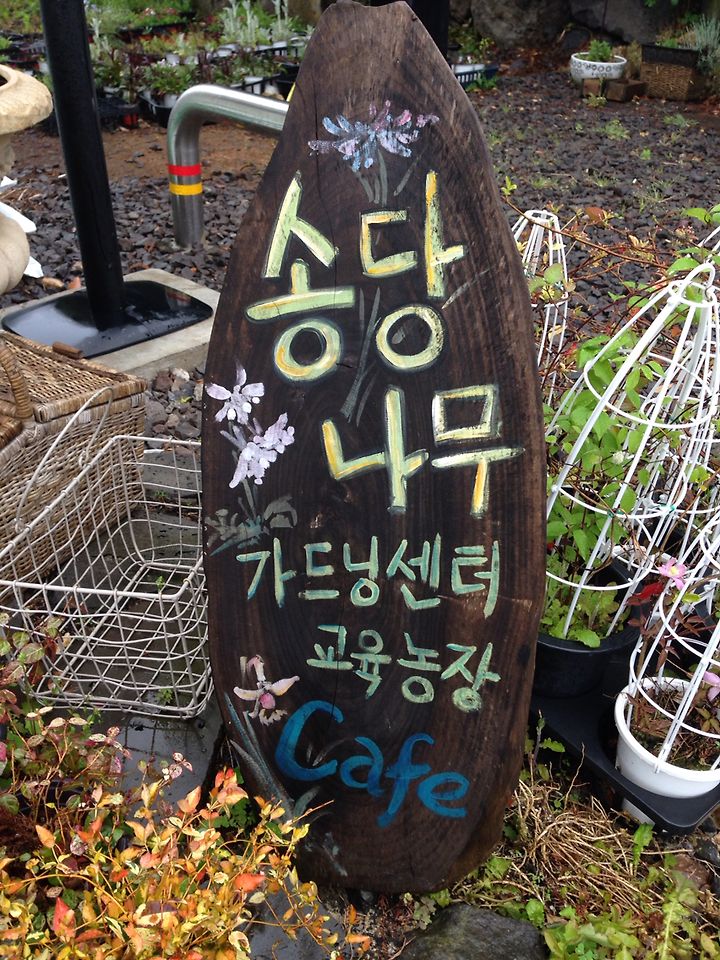 송당
나무
가드닝센터
교육농장
Cafe